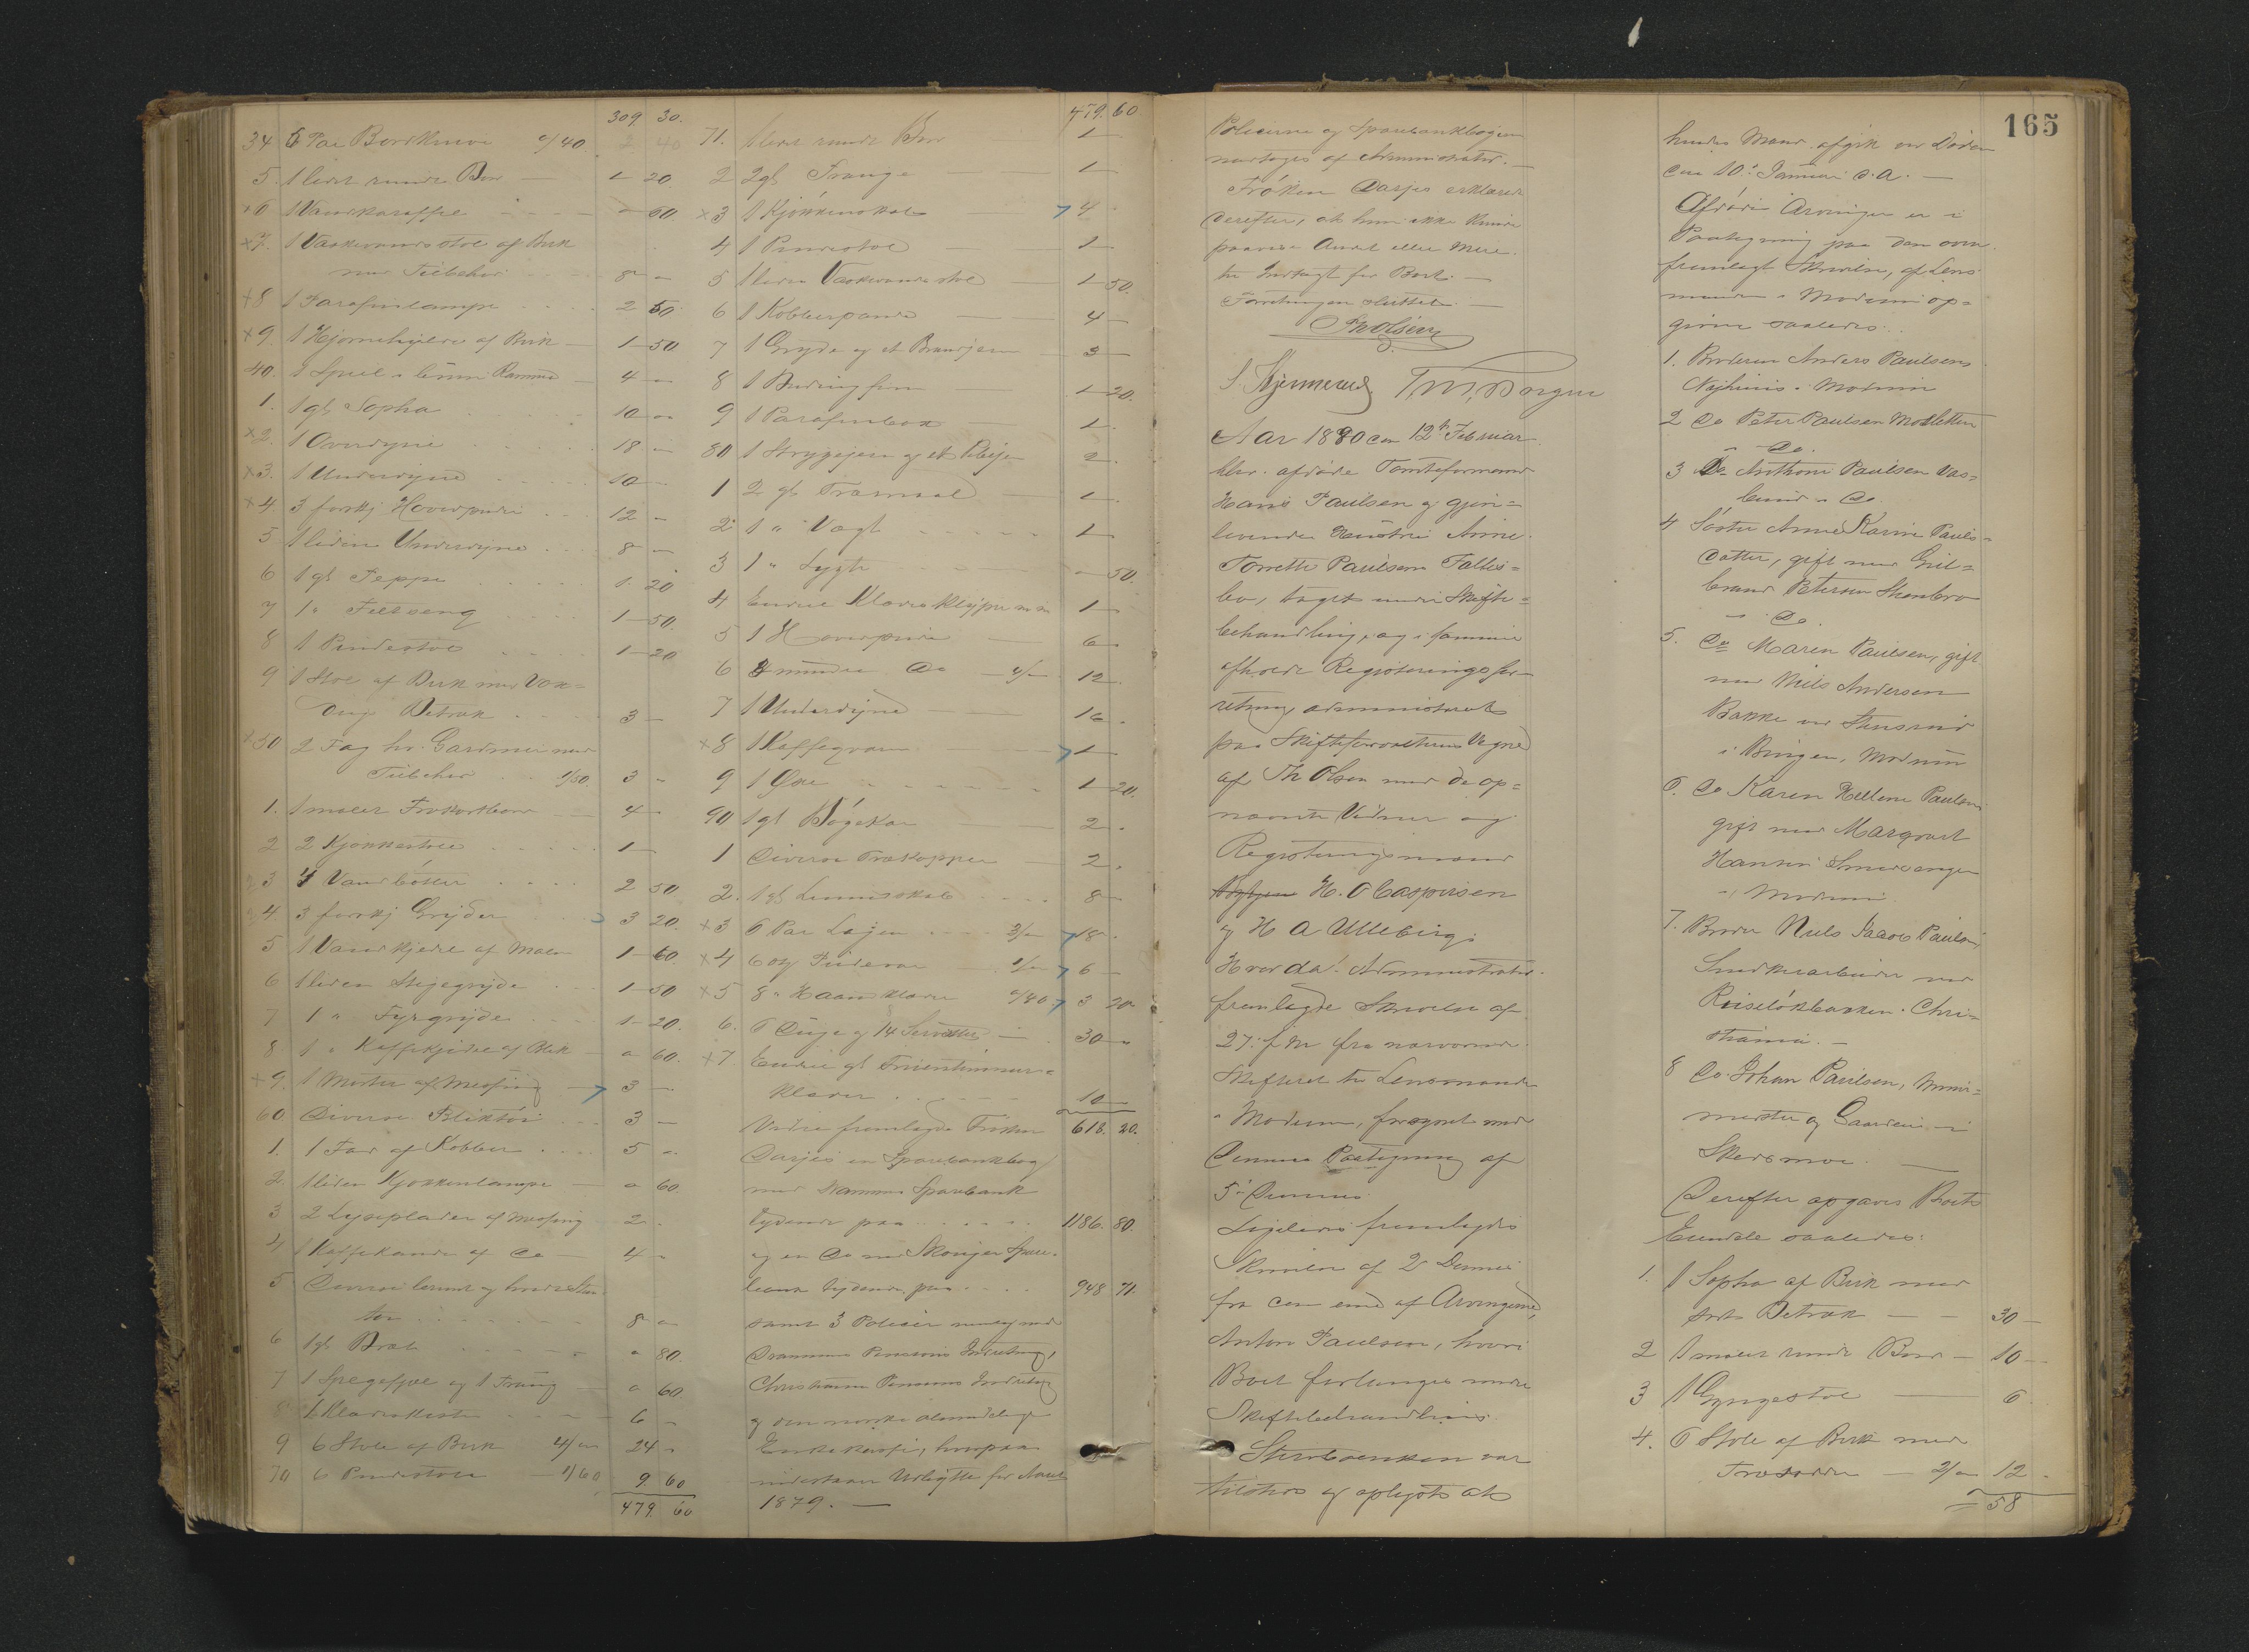 309 30.
34 6 Par Bordknive a/40. 2 40
5. 1 lidet rundt Bord 1 20
6 1 Vandkaraffel 60.
7. 1 Vaskevandsstol af Birk
med Tilbehør 8
8 1 Parafinlampe 2 50
9. 1 Hjørnehylde af Birk 1 50
40. 1 Speil i brun Ramme 4
1. 1 gl Sopha 10
2. 1 Overdyne 18
3. 1 Underdyne 10
4 3 forskj Hovedpuder 12
5 1 liden Underdyne 8
6 1 gl Teppe 1 20
7 1 " Feltseng 1 50.
8 1 Pindestol 1 20
9 1 Stol af Birk med Vox=
dugs Betræk 3
50 2 Fag hv. Gardiner med
Tilbehør 1/50. 3
1. 1 malet Frokostbord 4
2 2 Kjøkkenstole 1
3 4 Vandbøtter 2 50
4. 3 forskj Gryder 3 20.
5 1 Vandkjedel af Malm 1 60.
6 1 liden Stegegryde 1 50
7 1 " Fyrgryde 1 20.
8. 1 " Kaffekjedel af Blik 60.
9. 1 Morter af Messing 3
60. Diverse Bliktøi 3
1. 1 Fad af Kobber 5
2. 1 liden Kjøkkenlampe 60
3 2 Lyseplader af Messing 2
4 1 Kaffekande af Do 4
5 Diverse brunt og hvidt Sten
tøi 8
6 1 gl Bræt 80.
7 1 Spegefjæl og 1 Traug 60.
8 1 Klædeskiste 6
9 6 Stole af Birk 4/ 24
70 6 Pindestole 1/60 9 60
479. 60
479. 60
71. 1 lidet rundt Bord 1
2 2 gl Trauge 1
3 1 Kjøkkenskab 4
4 1 Pindestol 1
5 1 liden Vaskevandsstol 1 50.
6 1 Kobberpande 4
7 1 Gryde og et Brandjern 3
8 1 Budingform 1 20.
9 1 Parafinbox 1.
80 1 Strygejern og et Rivjern 2.
1 2 gl Træmaal 1.
2 1 " Vægt 1
3 1 " Lygte 50.
4 Endel Klædesklyper m m 1
5 1 Hovedpude 6
6 mindre Do 12
7 1 Underdyne 16
8 1 Kaffeqværn 1
9 1 Øxe 1 20.
90 1 gl Bøgekar 2.
1 Diverse Trækopper 2.
2. 1 gl Linnedskab 8
3 6 Par Lagen 3/ 18.
4 6 Pudevar 1/ 6
5 8 " Haandklæder a/40 3 20
6. 6 Duge og 14 Servietter 30
7. Endel gl Fruentimmer=
klæder 10
Videre fremlagde Frøken 618. 20.
Darjes en Sparebankbog
med Drammens Sparebank
lydende paa 1186. 80.
og en Do med Skouger Spare=
bank lydende paa 948 71.
samt 3 Policer nemlig med
Drammens Pensions Indretning,
Christiania Pensions Indretning
og den norske almindelige
Enkekasse, hvorpaa
indestaar Udbytte for Aaret
1879.
165
Policerne og Sparebankbøgerne
modtoges af Administrator.
Frøken Darjes erklærede
derefter, at hun ikke kunde
paavise Andet eller Mere
tilhørende for Boet.
Forretningen sluttet.
Th Olsen
S. Hjermerud T. M. Borgen
Aar 1880 den 12te Februar
blev afdøde Tomteformand
Hans Paulsen og gjen=
levende Hustru Anne
Torrette Paulsens Fælles=
bo, taget under Skifte=
behandling, og i samme
afholdt Registreringsfor=
retning administreret
paa Skifteforvalterens Vegne
af Th Olsen med de op=
nævnte Vidner og
Registreringsmænd
H. O Caspersen
og H A Ulleberg.
Hvorda Administrator
fremlagde Skrivelse af
27. f M fra nærværende
Skifteret til Lensmanden
i Modum, forsynet med
Dennes Paategning af
5te Dennes.
Ligeledes fremlagdes
Skrivelse af 2 Dennes
fra den ene af Arvingerne,
Anton Paulsen, hvori
Boet forlanges under
Skiftebehandling.
Sterboenken var
tilstede og oplyste at
hendes Mand afgik ved Døden
den 10. Januar d.A.
Afdødes Arvinger er i
Paategning paa den oven
fremlagt Skrivelse, af Lens
manden i Modum op=
givne saaledes:
1. Broderen Anders Paulsen
Nyhuus i Modum
2 Do Peter Paulsen Moesletten
i Do.
3 Do Anthon Paulsen Vas=
brund i Do
4 Søster Anne Karine Pauls=
datter, gift med Gul=
brand Petersen Stenbro
i Do
5. Do Maren Paulsen, gift
med Nils Andersen
Bakke ved Stensrud
i Bingen, Modum
6. Do Karen Hellene Paulsen
gift med Marqvart
Hansen Smedvangen
i Modum
7. Broder Niels Jacob Paulsen,
Snedkerarbeider ved
Ruseløkbakken, Chri=
stiania.
8 Do Johan Paulsen, Muur=
mester og Gaardeier i
Skedsmoe.
Derefter opgaves Boets
Eiendele saaledes:
1. 1 Sopha af Birk med
sort Betræk 30
2 1 malet rundt Bord 10
3 1 Gyngestol 6
4. 6 Stole af Birk med
Træsæder 2/ 12
58